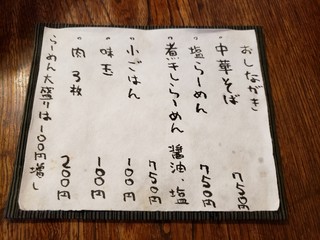 おしながき
。中華そば 750円
。塩らーめん 750円
。煮干しらーめん 醤油・塩 750円
。小ごはん 100円
。味玉 100円
。肉3枚 200円
らーめん大盛りは100円増し